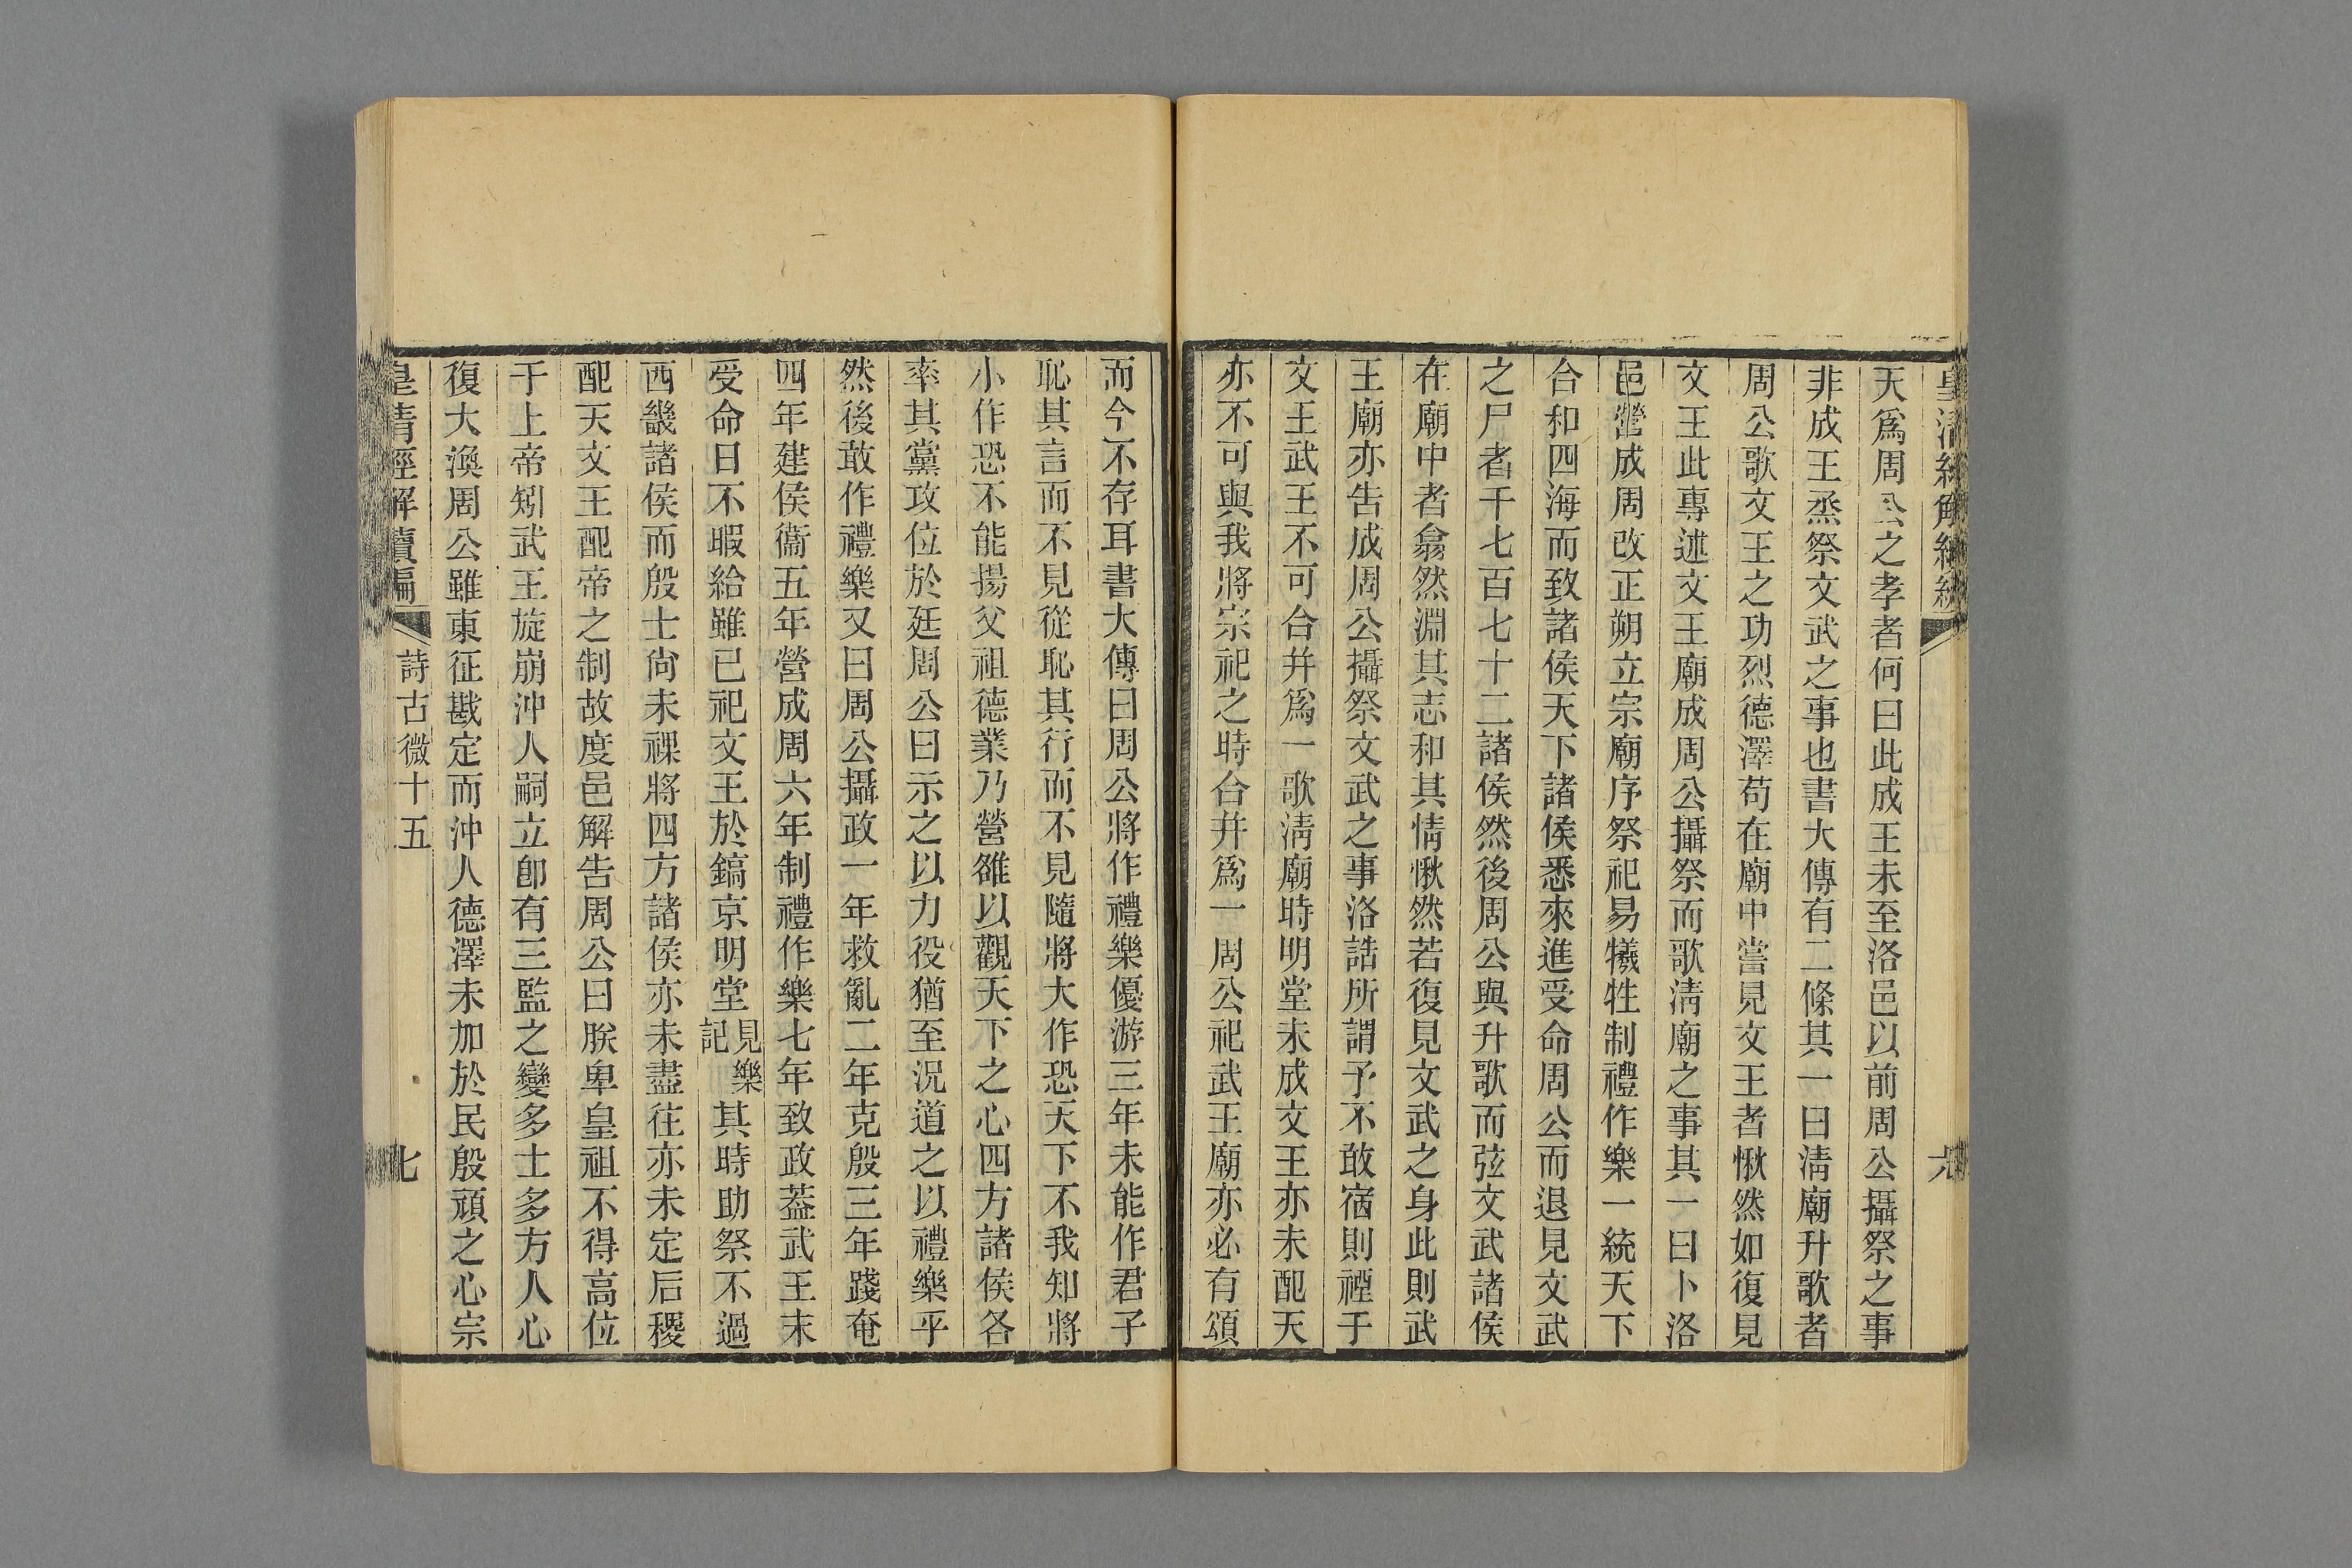 天爲周公之孝者何曰此成王未至洛邑以前周公攝祭之事
非成王烝祭文武之事也書大傳有二條其一曰淸廟升歌者
周公歌文王之功烈德澤苟在廟中嘗見文王者愀然如復見
文王此專述文王廟成周公攝祭而歌淸廟之事其一曰卜洛
邑營成周改正朔立宗廟序祭祀易犧牲制禮作樂一統天下
合和四海而致諸侯天下諸侯悉來進受命周公而退見文武
之尸者千七百七十二諸侯然後周公與升歌而弦文武諸侯
在廟中者翕然淵其志和其情愀然若復見文武之身此則武
王廟亦告成周公攝祭文武之事洛誥所謂予不敢宿則禋于
文王武王不可合幷爲一歌淸廟時明堂未成文王亦未配天
亦不可與我將宗祀之時合幷爲一周公祀武王廟亦必有頌
而今不存耳書大傳曰周公將作禮樂優游三年未能作君子
恥其言而不見從恥其行而不見隨將大作恐天下不我知將
小作恐不能揚父祖德業乃營雒以觀天下之心四方諸侯各
率其黨攻位於廷周公曰示之以力役猶至況道之以禮樂乎
然後敢作禮樂又曰周公攝政一年救亂二年克殷三年踐奄
四年建侯衞五年營成周六年制禮作樂七年致政葢武王末
受命日不暇給雖已祀文王於鎬京明堂見樂記其時助祭不過
西畿諸侯而殷士尙未祼將四方諸侯亦未盡往亦未定后稷
配天文王配帝之制故度邑解告周公曰朕卑皇祖不得高位
于上帝矧武王旋崩沖人嗣立卽有三監之變多士多方人心
復大渙周公雖東征戡定而沖人德澤未加於民殷頑之心宗
皇淸經解續編
詩古微十五
七